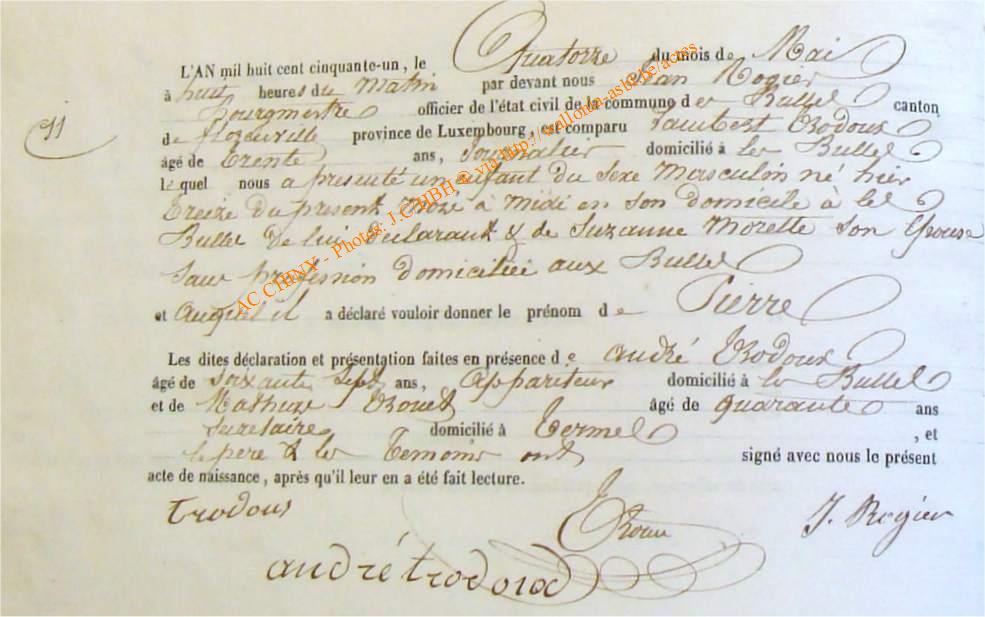 11
L'AN mil huit cent cinquante-un, le Quatorze du mois de Mai
à huit heures du Matin par devant nous Jean Rogier
Bourgmestre officier de l'état civil de la commune des Bulles canton
de florenville province de Luxembourg, est comparu Lambert Trodoux
âgé de trente ans, Journalier domicilié à les Bulles
lequel nous a presenté un enfant du Sexe Masculin né hier
treize du present Mois à Midi en son domicile à les
Bulles de lui declarant & de Suzanne Morette son Epouse
sans profession domiciliée aux Bulles
et auquel il a déclaré vouloir donner le prénom de Pierre
Les dites déclaration et présentation faites en présence de andré Trodoux
âgé de Soixante Sept ans, Appariteur domicilié à les Bulles
et de âgé de quarante ans
Secretaire domicilié à Termes , et
le pere & les Temoins ont signé avec nous le présent
acte de naissance, après qu'il leur en a été fait lecture.
trodoux J. Rogier
andré trodoux
AC CHINY - Photos: J.CHIBH © via http://wallonia-asbl.be/actes